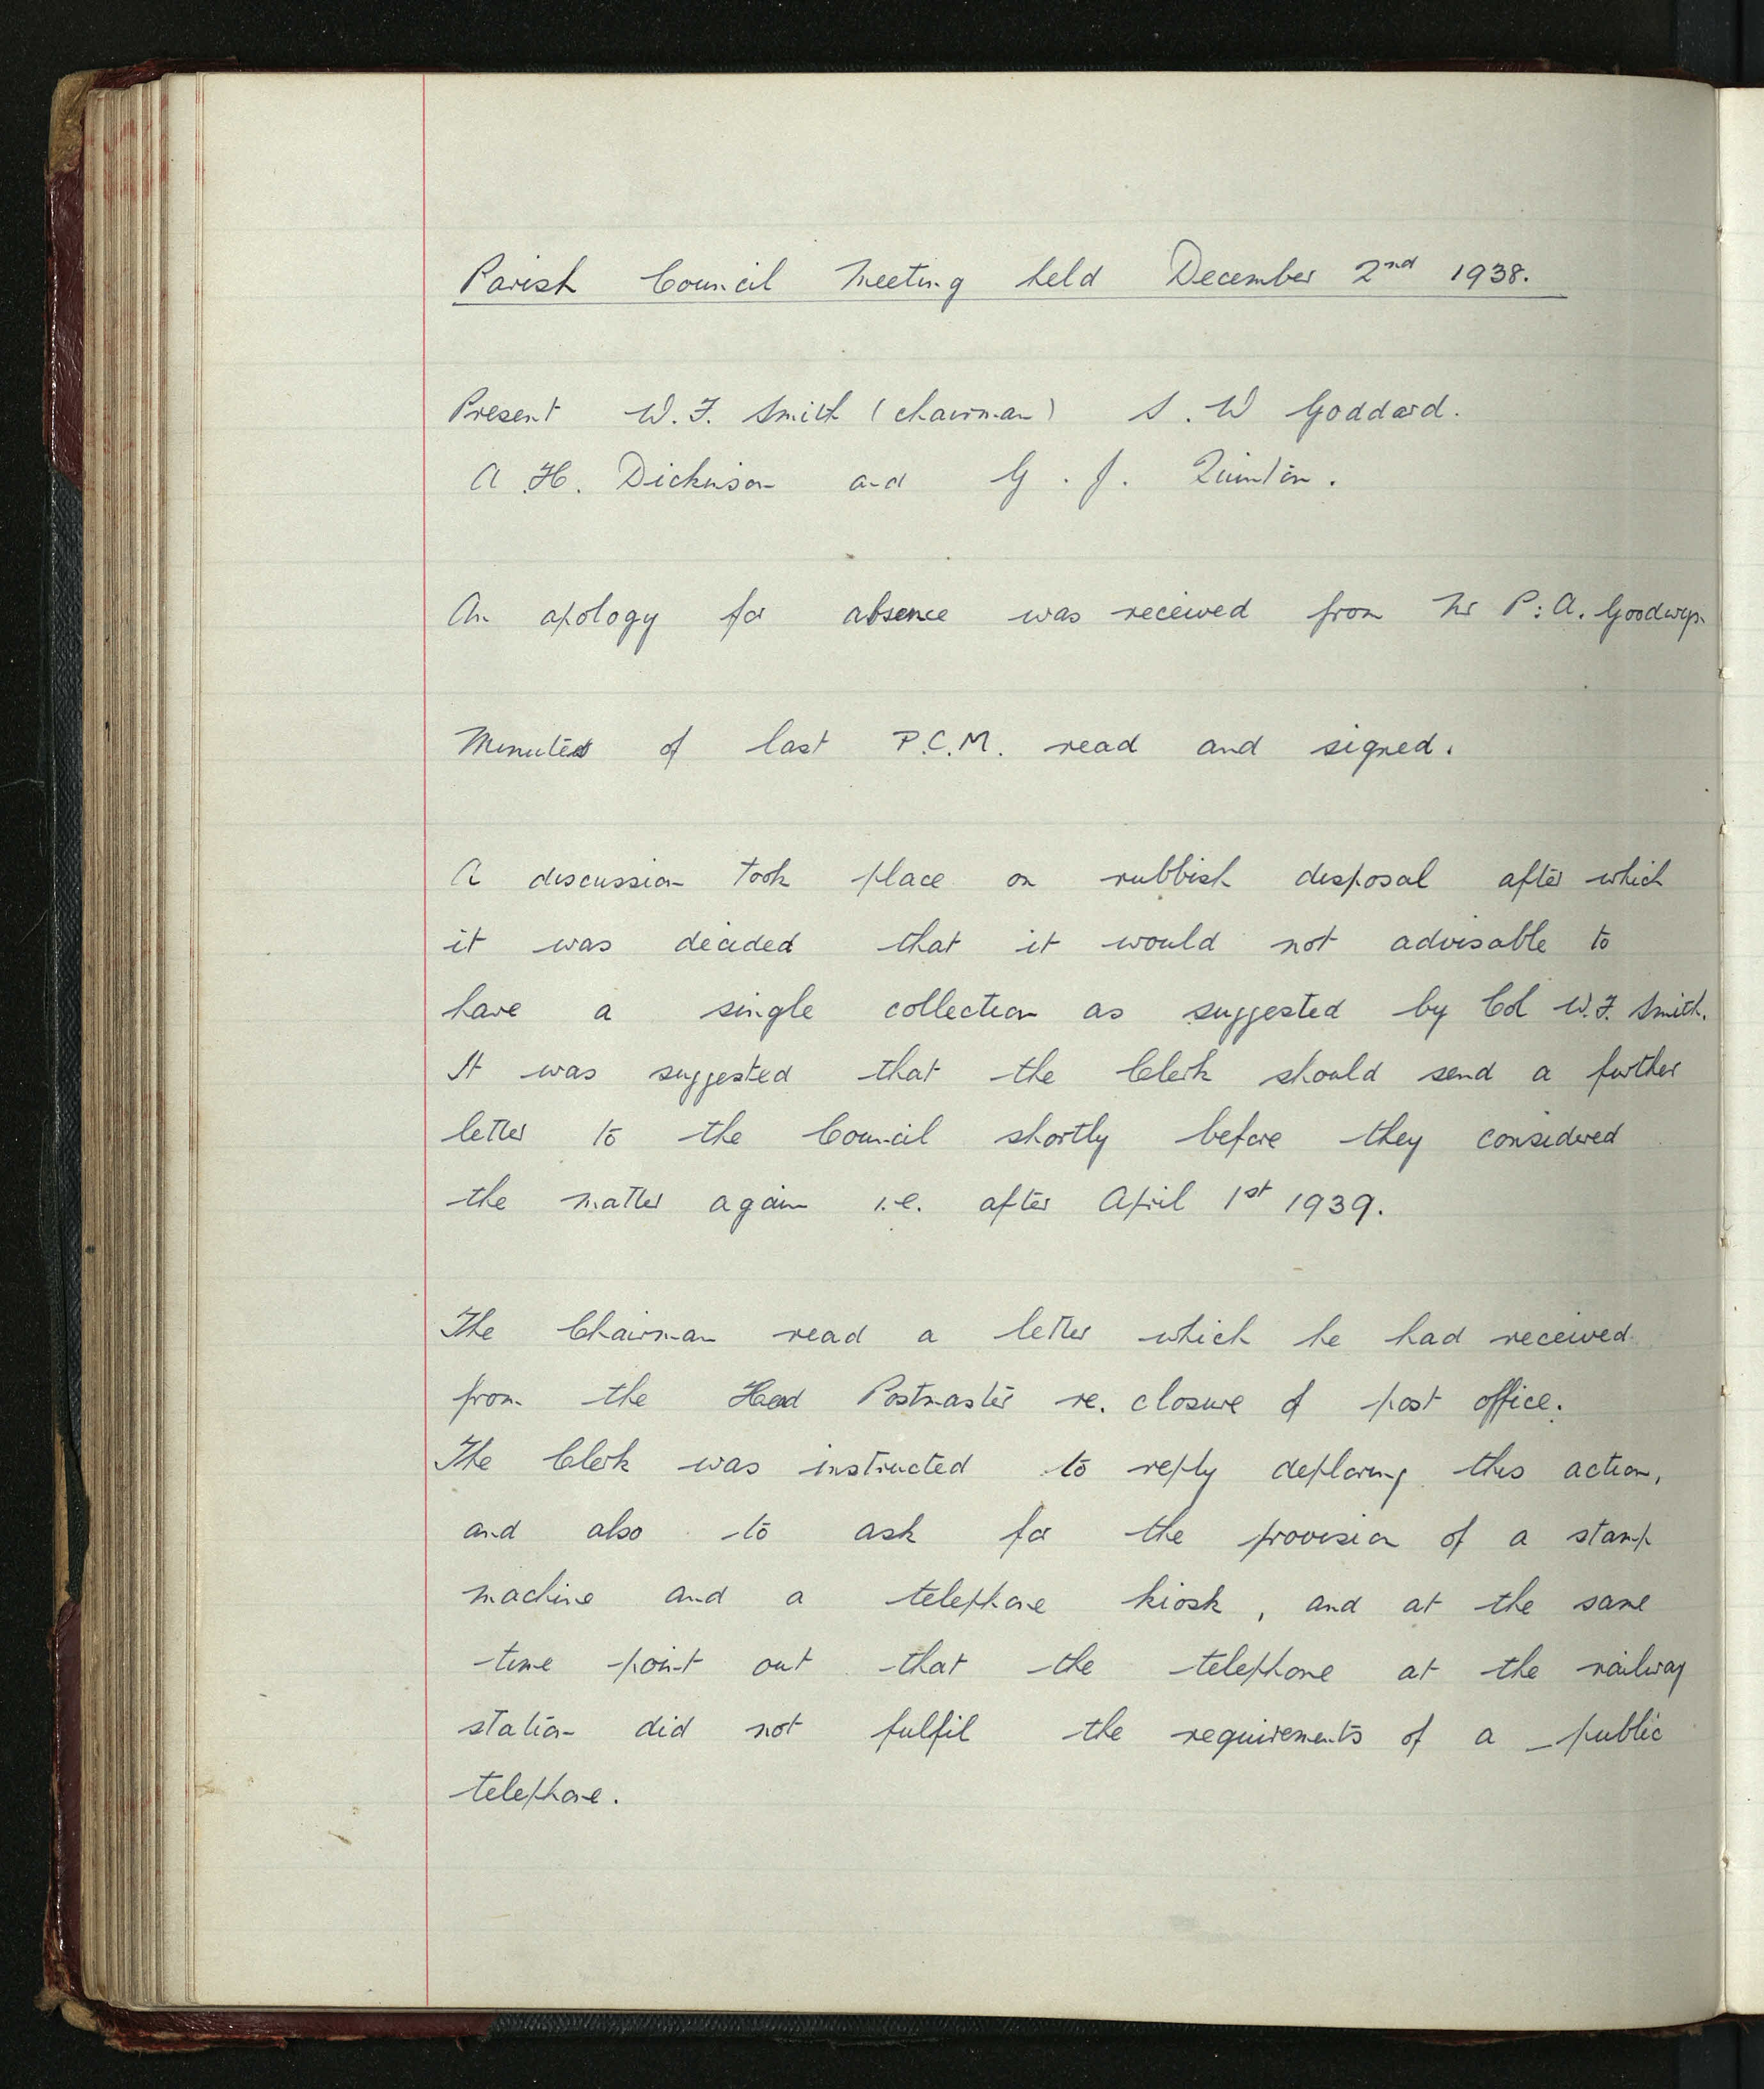 Parish Council Meeting held December 2nd 1938.
Present W. F. Smith (chairman) S. W Goddard.
A. H. Dickinson and G. J. Quinton.
An apology for absence was received from Mr P. A. Goodwyn
Minutes of last P.C.M. read and signed.
A discussion took place on rubbish disposal after which
it was decided that it would not advisable to
have a single collection as suggested by Col W. F. Smith.
It was suggested that the Clerk should send a further
letter to the Council shortly before they considered
the matter again i.e. after April 1st 1939.
The Chairman read a letter which he had received
from the Head Postmaster re. closure of post office.
The Clerk was instructed to reply deploring this action,
and also to ask for the provision of a stamp
machine and a telephone kiosk, and at the same
time point out that the telephone at the railway
station did not fulfil the requirements of a public
telephone.